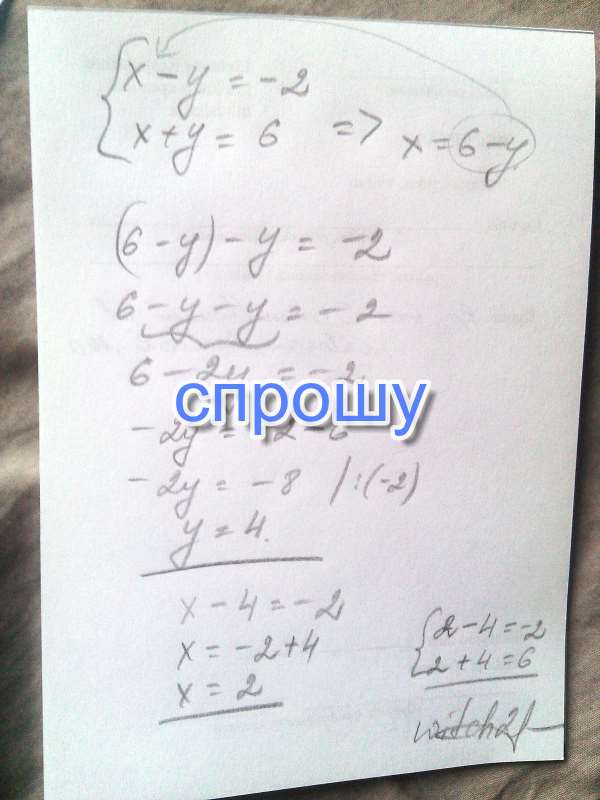 x - y = -2
x + y = 6 => x = 6 - y
(6 - y) - y = -2
6 - y - y = -2
6 - 2y = -2
спрошу
-2y = -2 - 6
-2y = -8 /:(-2)
y = 4.
x - 4 = -2
x = -2 + 4
x = 2
2 - 4 = -2
2 + 4 = 6